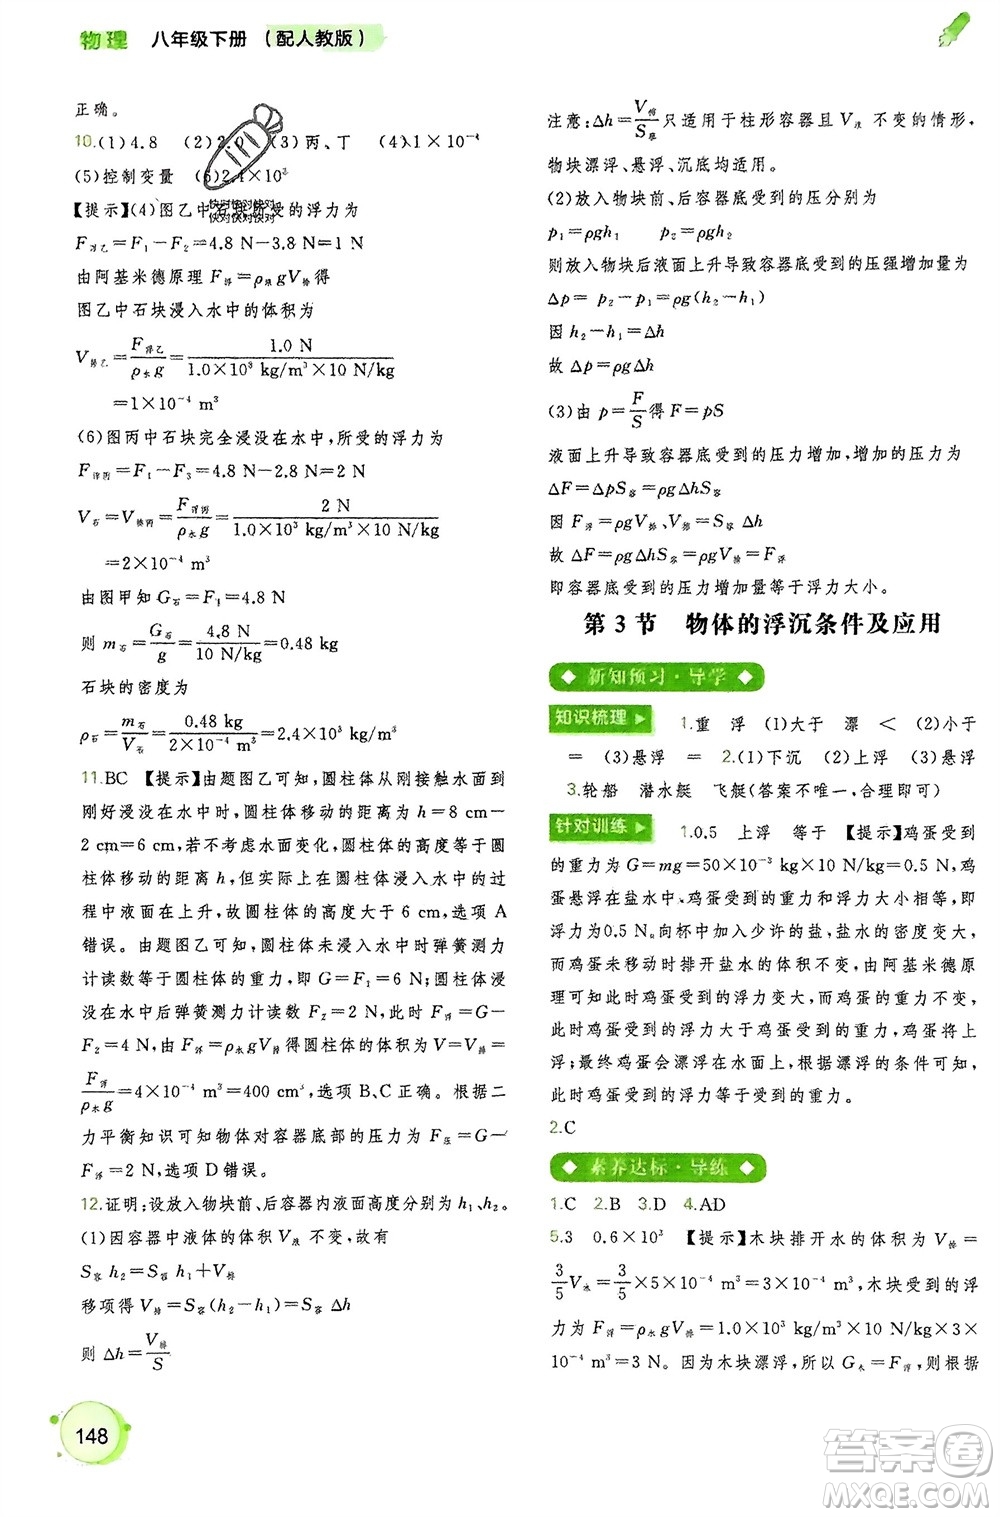 物理 八年级下册 (配人教版)
正确。
10.(1)4.8 (2)2.0 (3)丙、丁 (4)1×10⁻⁴
(5)控制变量 (6)2.4×10³
【提示】(4)图乙中石块所受的浮力为
F浮乙=F₁-F₂=4.8 N-3.8 N=1 N
由阿基米德原理 F浮=ρ液gV排得
图乙中石块浸入水中的体积为
V排乙=F浮乙/ρ水g=1.0 N/1.0×10³ kg/m³×10 N/kg
=1×10⁻⁴ m³
(6)图丙中石块完全浸没在水中,所受的浮力为
F浮丙=F₁-F₃=4.8 N-2.8 N=2 N
V石=V排丙=F浮丙/ρ水g=2 N/1.0×10³ kg/m³×10 N/kg
=2×10⁻⁴ m³
由图甲知 G石=F₁=4.8 N
则 m石=G石/g=4.8 N/10 N/kg=0.48 kg
石块的密度为
ρ石=m石/V石=0.48 kg/2×10⁻⁴ m³=2.4×10³ kg/m³
11.BC 【提示】由题图乙可知,圆柱体从刚接触水面到
刚好浸没在水中时,圆柱体移动的距离 h=8 cm-
2 cm=6 cm,若不考虑水面变化,圆柱体的高度等于圆
柱体移动的距离 h,但实际上圆柱体浸入水中的过
程中液面在上升,故圆柱体的高度大于 6 cm,选项 A
错误。由题图乙可知,圆柱体未浸入水中时弹簧测力
计读数等于圆柱体的重力,即 G=F₁=6 N;圆柱体浸
没在水中后弹簧测力计读数 F₂=2 N,则 F浮=G-
F₂=4 N,由 F浮=ρ水gV排得圆柱体的体积为 V=V排=
F浮/ρ水g=4×10⁻⁴ m³=400 cm³,选项 B、C 正确。根据二
力平衡知识可知物体对容器底部的压力为 F压=G-
F浮=2 N,选项 D 错误。
12.证明:设放入物块前、后容器内液面高度分别为 h₁、h₂。
(1)因容器中液体的体积 V液 不变,故有
S容 h₂=S容 h₁+V排
移项得 V排=S容(h₂-h₁)=S容 Δh
则 Δh=V排/S
注意:Δh=V排/S容 只适用于柱形容器且 V液 不变的情形,
物块漂浮、悬浮、沉底均适用。
(2)放入物块前、后容器底受到的压力分别为
p₁=ρgh₁ p₂=ρgh₂
则放入物块后液面上升导致容器底受到的压强增加量为
Δp=p₂-p₁=ρg(h₂-h₁)
因 h₂-h₁=Δh
故 Δp=ρgΔh
(3)由 p=F/S得 F=pS
液面上升导致容器底受到的压力增加的压力为
ΔF=ΔpS容=ρgΔhS容
因 F浮=ρgV排、V排=S容 Δh
故 ΔF=ρgΔhS容=ρgV排=F浮
即容器底受到的压力增加量等于浮力大小。
第 3 节 物体的浮沉条件及应用
新知预习·导学
知识梳理 1.重 浮 (1)大于 漂 < (2)小于
= (3)悬浮 = 2.(1)下沉 (2)上浮 (3)悬浮
3.轮船 潜水艇 飞艇(答案不唯一,合理即可)
针对训练 1.0.5 上浮 等于 【提示】鸡蛋受到
的重力为 G=mg=50×10⁻³ kg×10 N/kg=0.5 N,鸡
蛋悬浮在盐水中,鸡蛋受到的浮力等于重力,所以浮
力为0.5 N。向杯中加入少许的盐,盐水的密度变大,
而鸡蛋未移动时排开盐水的体积不变,由阿基米德原
理可知此时鸡蛋受到的浮力变大,而鸡蛋的重力不变,
此时鸡蛋受到的浮力大于鸡蛋受到的重力,鸡蛋将上
浮;最终鸡蛋会漂浮在水面上,根据漂浮的条件可知,
此时鸡蛋受到的浮力等于鸡蛋受到的重力。
2.C
素养达标·导练
1.C 2.B 3.D 4.AD
5.3 0.6×10³ 【提示】木块排开水的体积为 V排=
3/5V木=3/5×5×10⁻⁴ m³=3×10⁻⁴ m³,木块受到的浮
力为 F浮=ρ水gV排=1.0×10³ kg/m³×10 N/kg×3×
10⁻⁴ m³=3 N。因为木块漂浮,所以 G木=F浮,则根据
148
快对快对快对
快对快对快对
答案圈
MXQE.COM